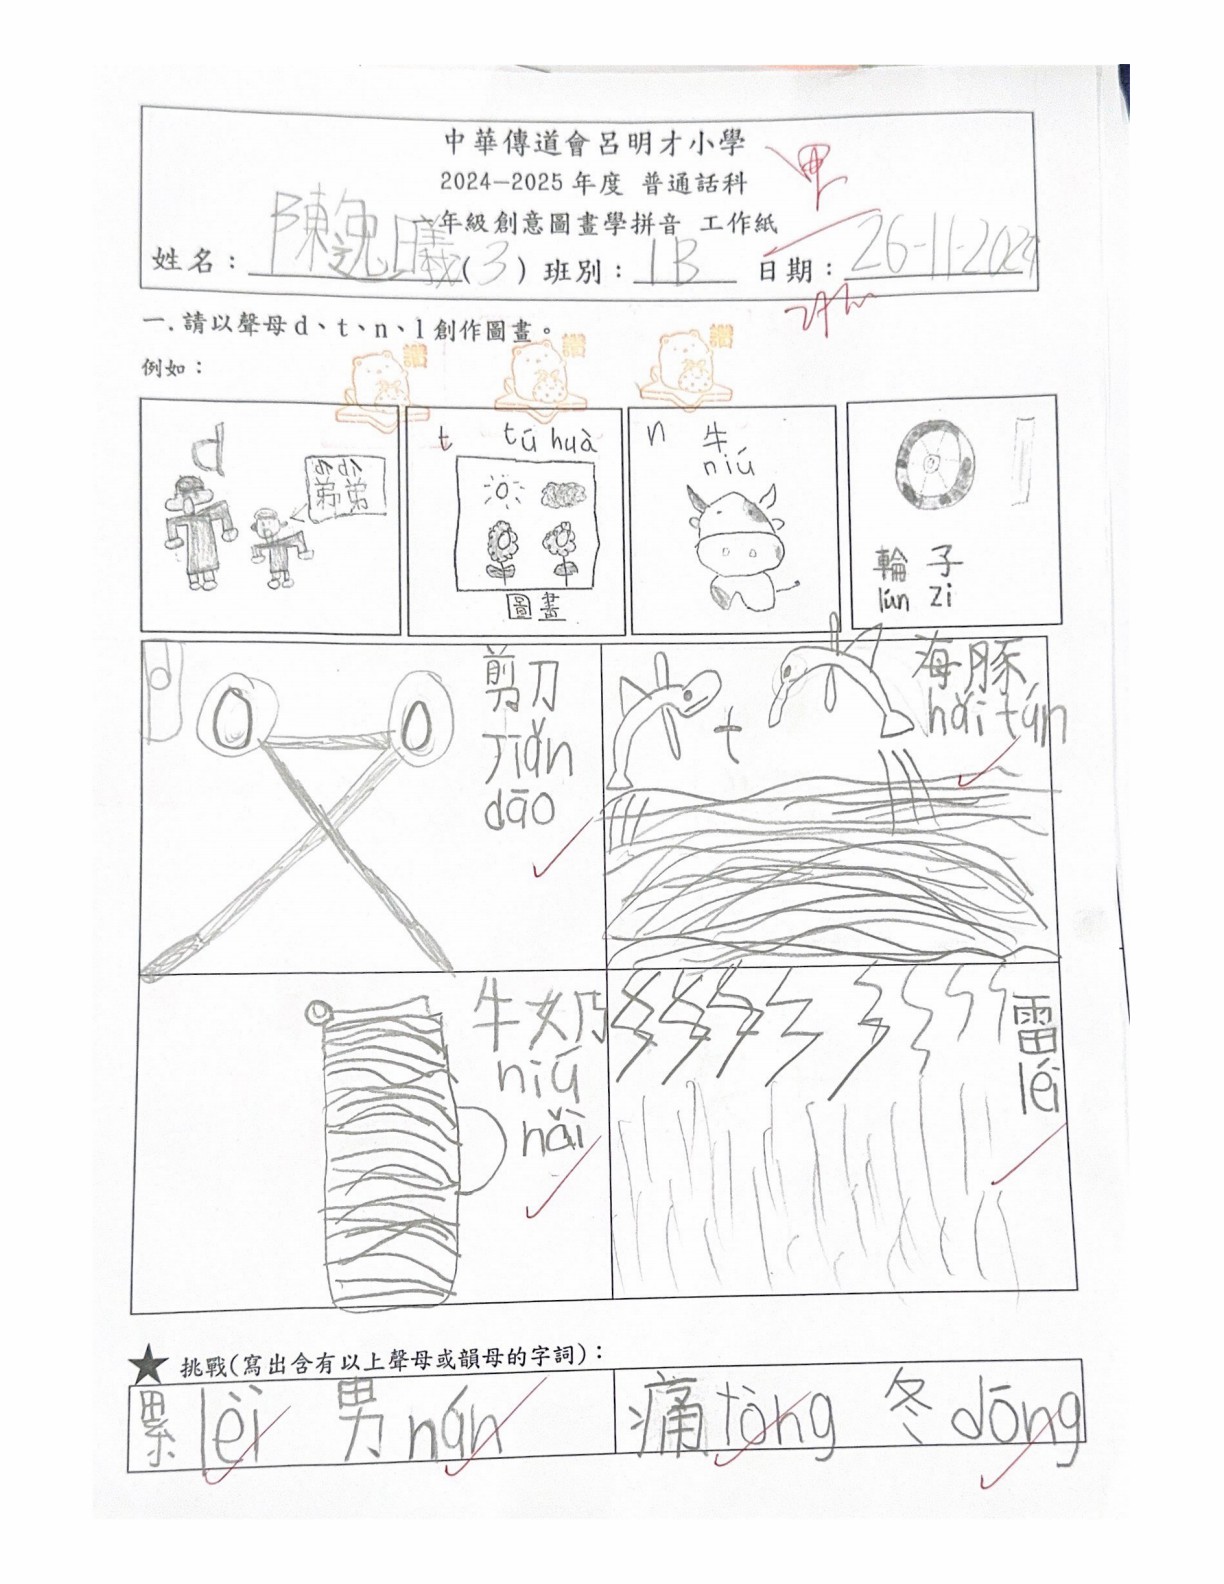 中華傳道會呂明才小學
2024-2025 年度 普通話科
一年級創意圖畫學拼音 工作紙
姓名：陳逸曦(3) 班別：1B 日期：26-11-2024
一.請以聲母d、t、n、l創作圖畫。
例如：
讚 讚 讚
d
弟弟
t tú huà
圖畫
n 牛
niú
l
輪子
lún zi
d
剪刀
Jiǎn
dāo
t
海豚
hǎi tún
牛奶
niú
nǎi
雷
léi
★ 挑戰(寫出含有以上聲母或韻母的字詞)：
累 lèi 男 nán 痛 tòng 冬 dōng